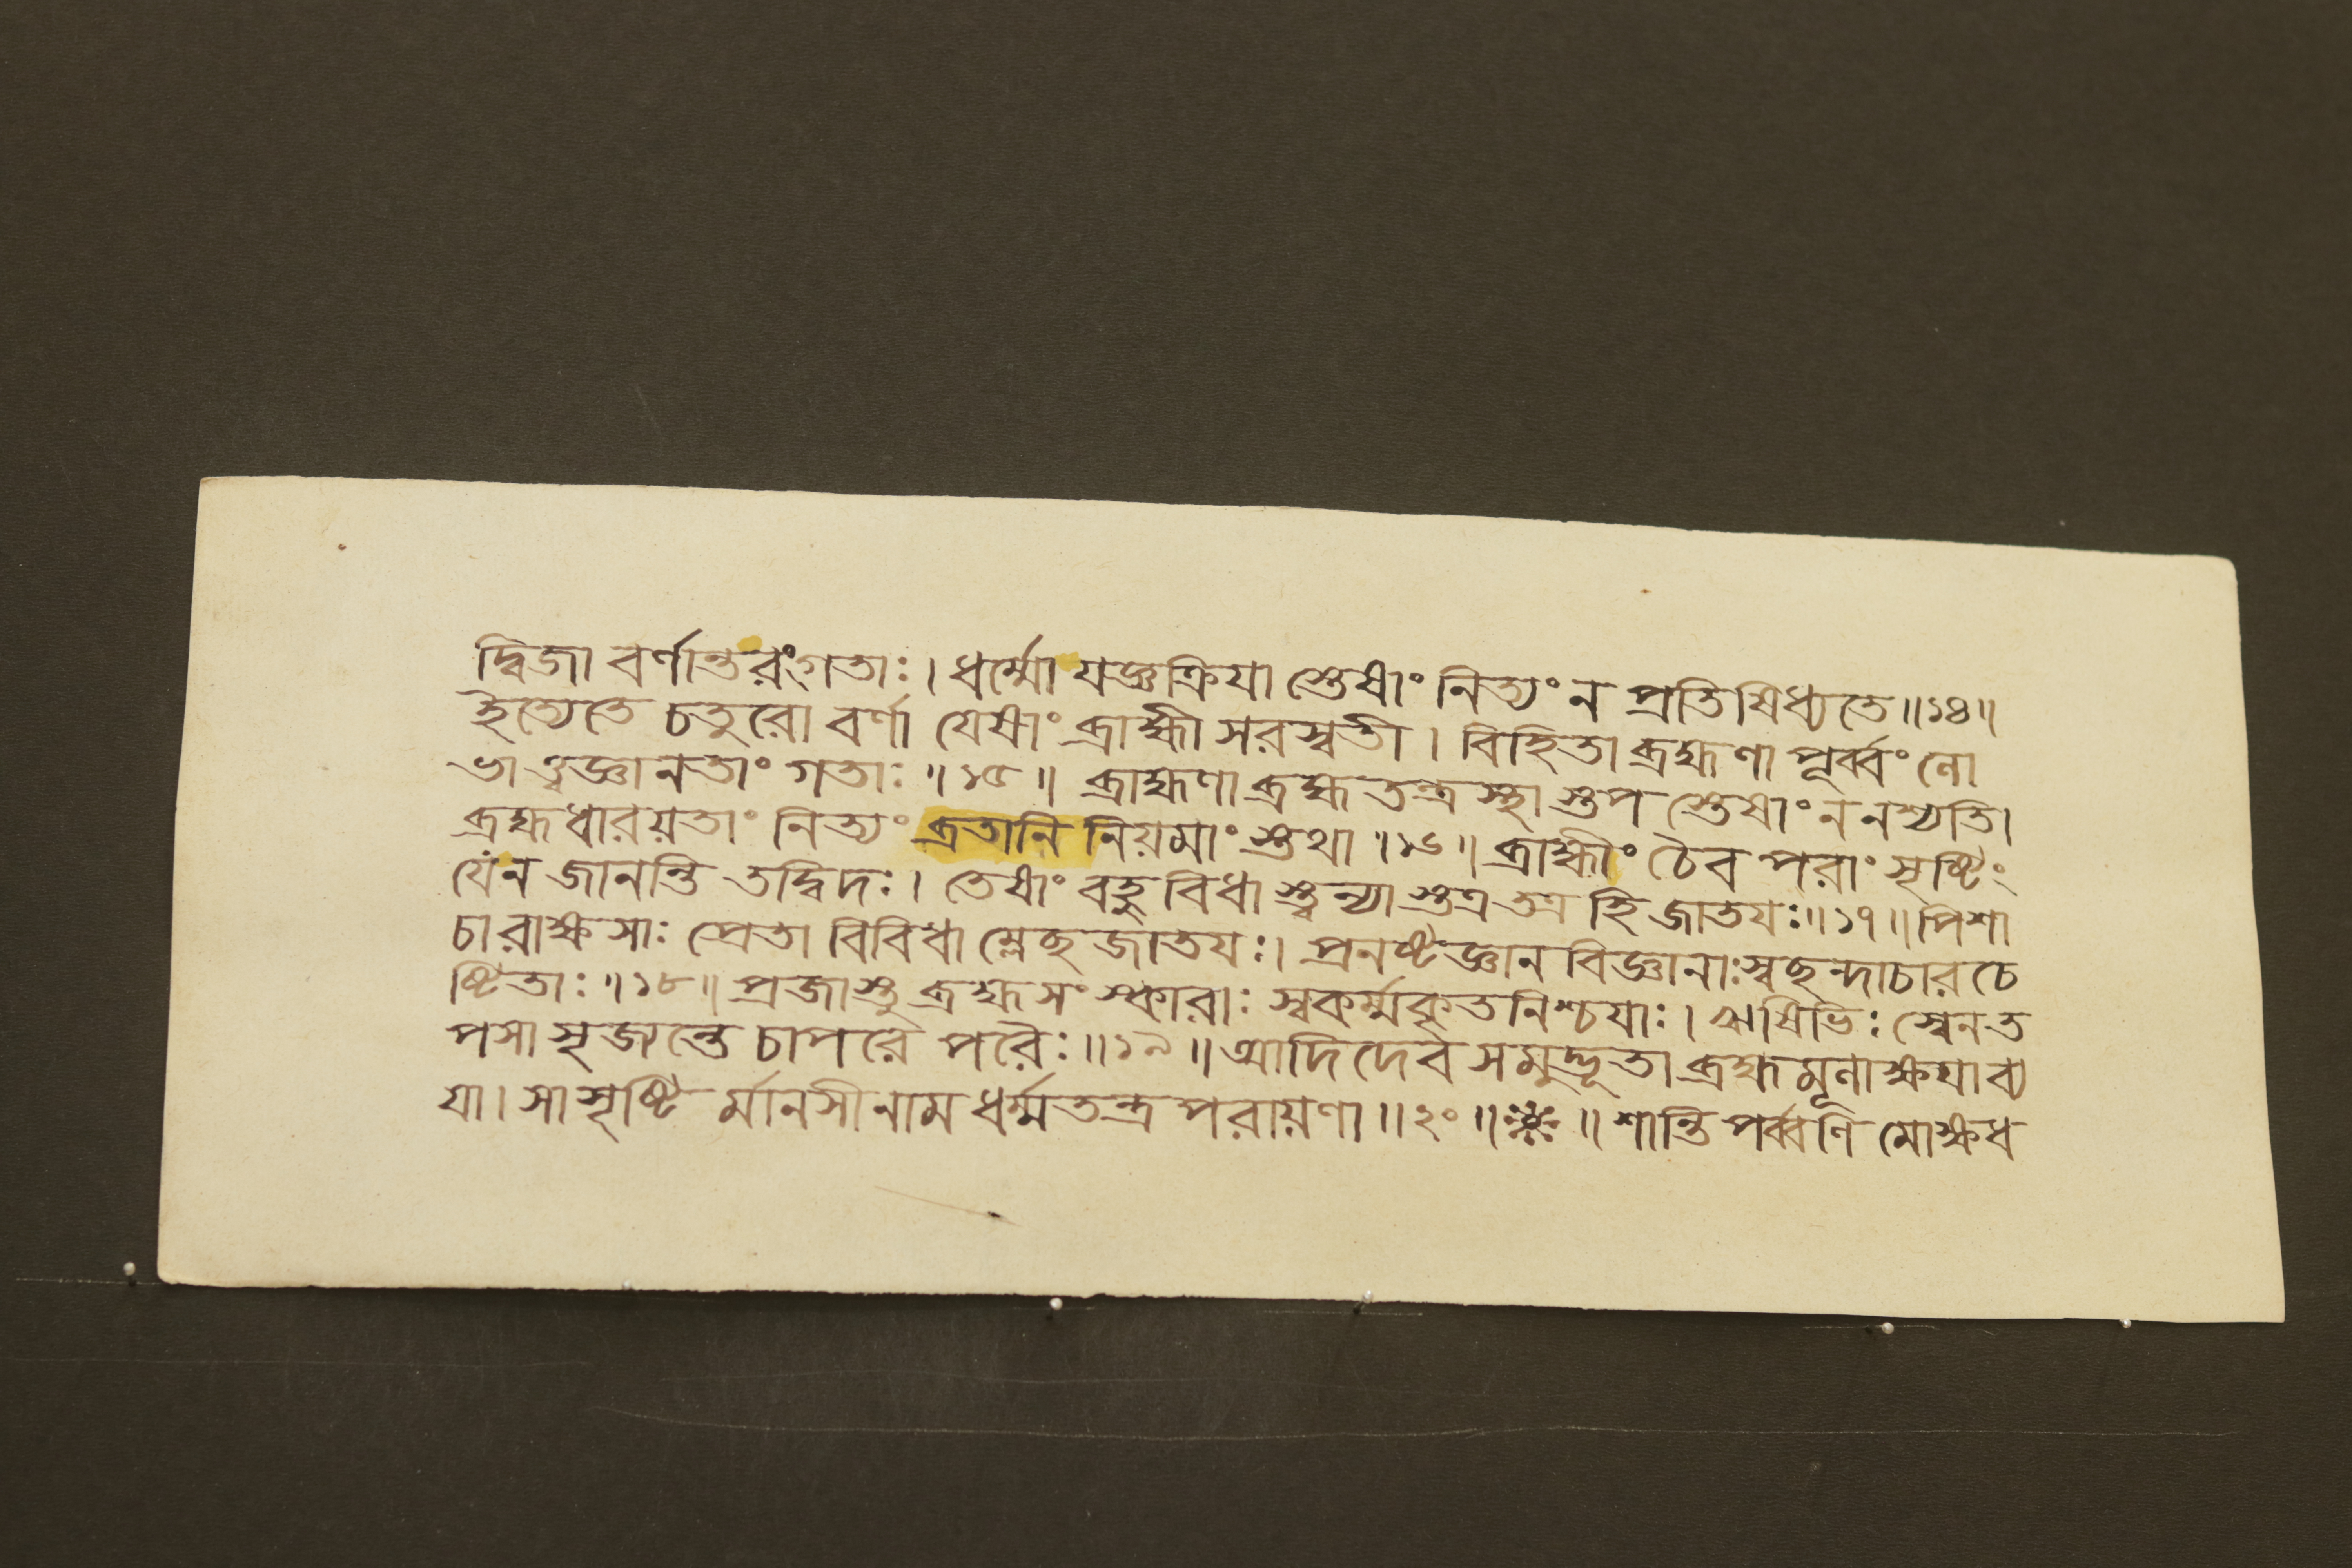 দ্বিজা বর্ণান্তরং গতাঃ। ধর্ম্মো যজ্ঞক্রিযা স্তেষাং নিত্যং ন প্রতিষিধ্যতে॥১৪॥
ইত্যেতে চতুরো বর্ণা যেষাং ব্রাহ্মী সরস্বতী। বিহিতা ব্রহ্মণা পূর্ব্বং লো
ভা ত্বজ্ঞানতাং গতাঃ॥১৫॥ ব্রাহ্মণা ব্রহ্মতন্ত্রস্থা স্তপ স্তেষাং ন নশ্যতি।
ব্রহ্ম ধারয়তাং নিত্যং ব্রতানি নিয়মাং স্তথা॥১৬॥ ব্রাহ্মীং চৈব পরাং সৃষ্টিং
যে ন জানন্তি তদ্বিদঃ। তেষাং বহুবিধা স্ত্বন্যা স্তত্র তত্র হি জাতযঃ॥১৭॥ পিশা
চা রাক্ষসাঃ প্রেতা বিবিধা ম্লেছ জাতযঃ। প্রনষ্টজ্ঞান বিজ্ঞানাঃ স্বছন্দাচার চে
ষ্টিতাঃ॥১৮॥ প্রজাস্তু ব্রহ্মসংস্কারাঃ স্বকর্ম্মকৃতনিশ্চযাঃ। ঋষিভিঃ স্বেন ত
পসা সৃজ্যন্তে চাপরে পরৈঃ॥১৯॥ আদিদেব সমুদ্ভূতা ব্রহ্মমূলাক্ষযাব্য
যা। সা সৃষ্টি র্মানসী নাম ধর্ম্মতন্ত্র পরায়ণা॥২০॥ ॥ শান্তি পর্ব্বণি মোক্ষধ